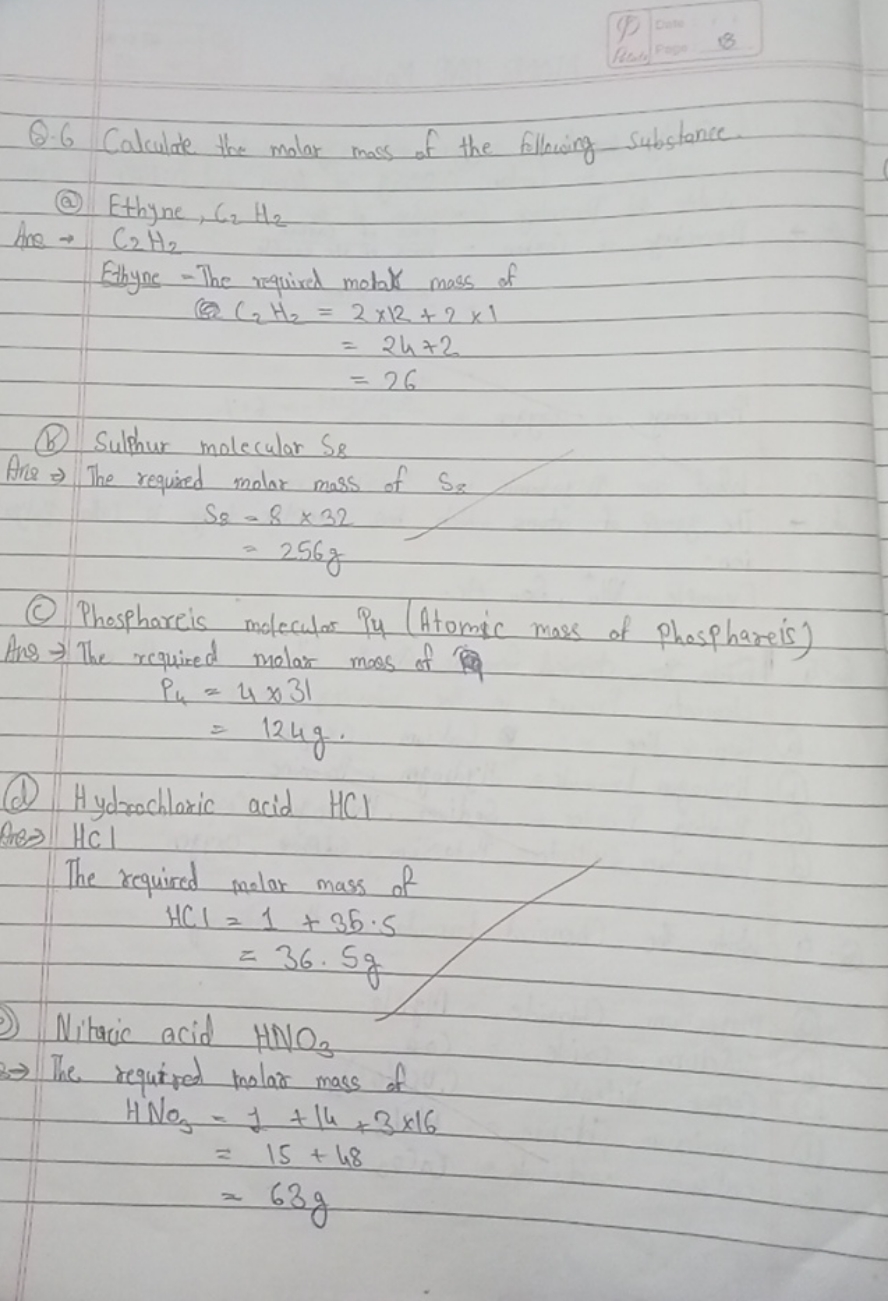 Date
Page 13
Q.6 Calculate the molar mass of the following substance.
(a) Ethyne, C2 H2
Ans → C2H2
Ethyne - The required molar mass of
C2H2 = 2×12 + 2×1
= 24+2
= 26
(b) Sulphur molecular S8
Ans ⇒ The required molar mass of S8
S8 = 8 × 32
= 256g
(c) Phosphareis molecular P4 (Atomic mass of phosphareis)
Ans → The required molar mass of
P4 = 4×31
= 124g.
(d) Hydrochloric acid HCl
Ans→ HCl
The required molar mass of
HCl = 1 + 35.5
= 36.5g
Nitaric acid HNO3
The required molar mass of
HNO3 = 1 + 14 + 3×16
= 15 + 48
= 63g